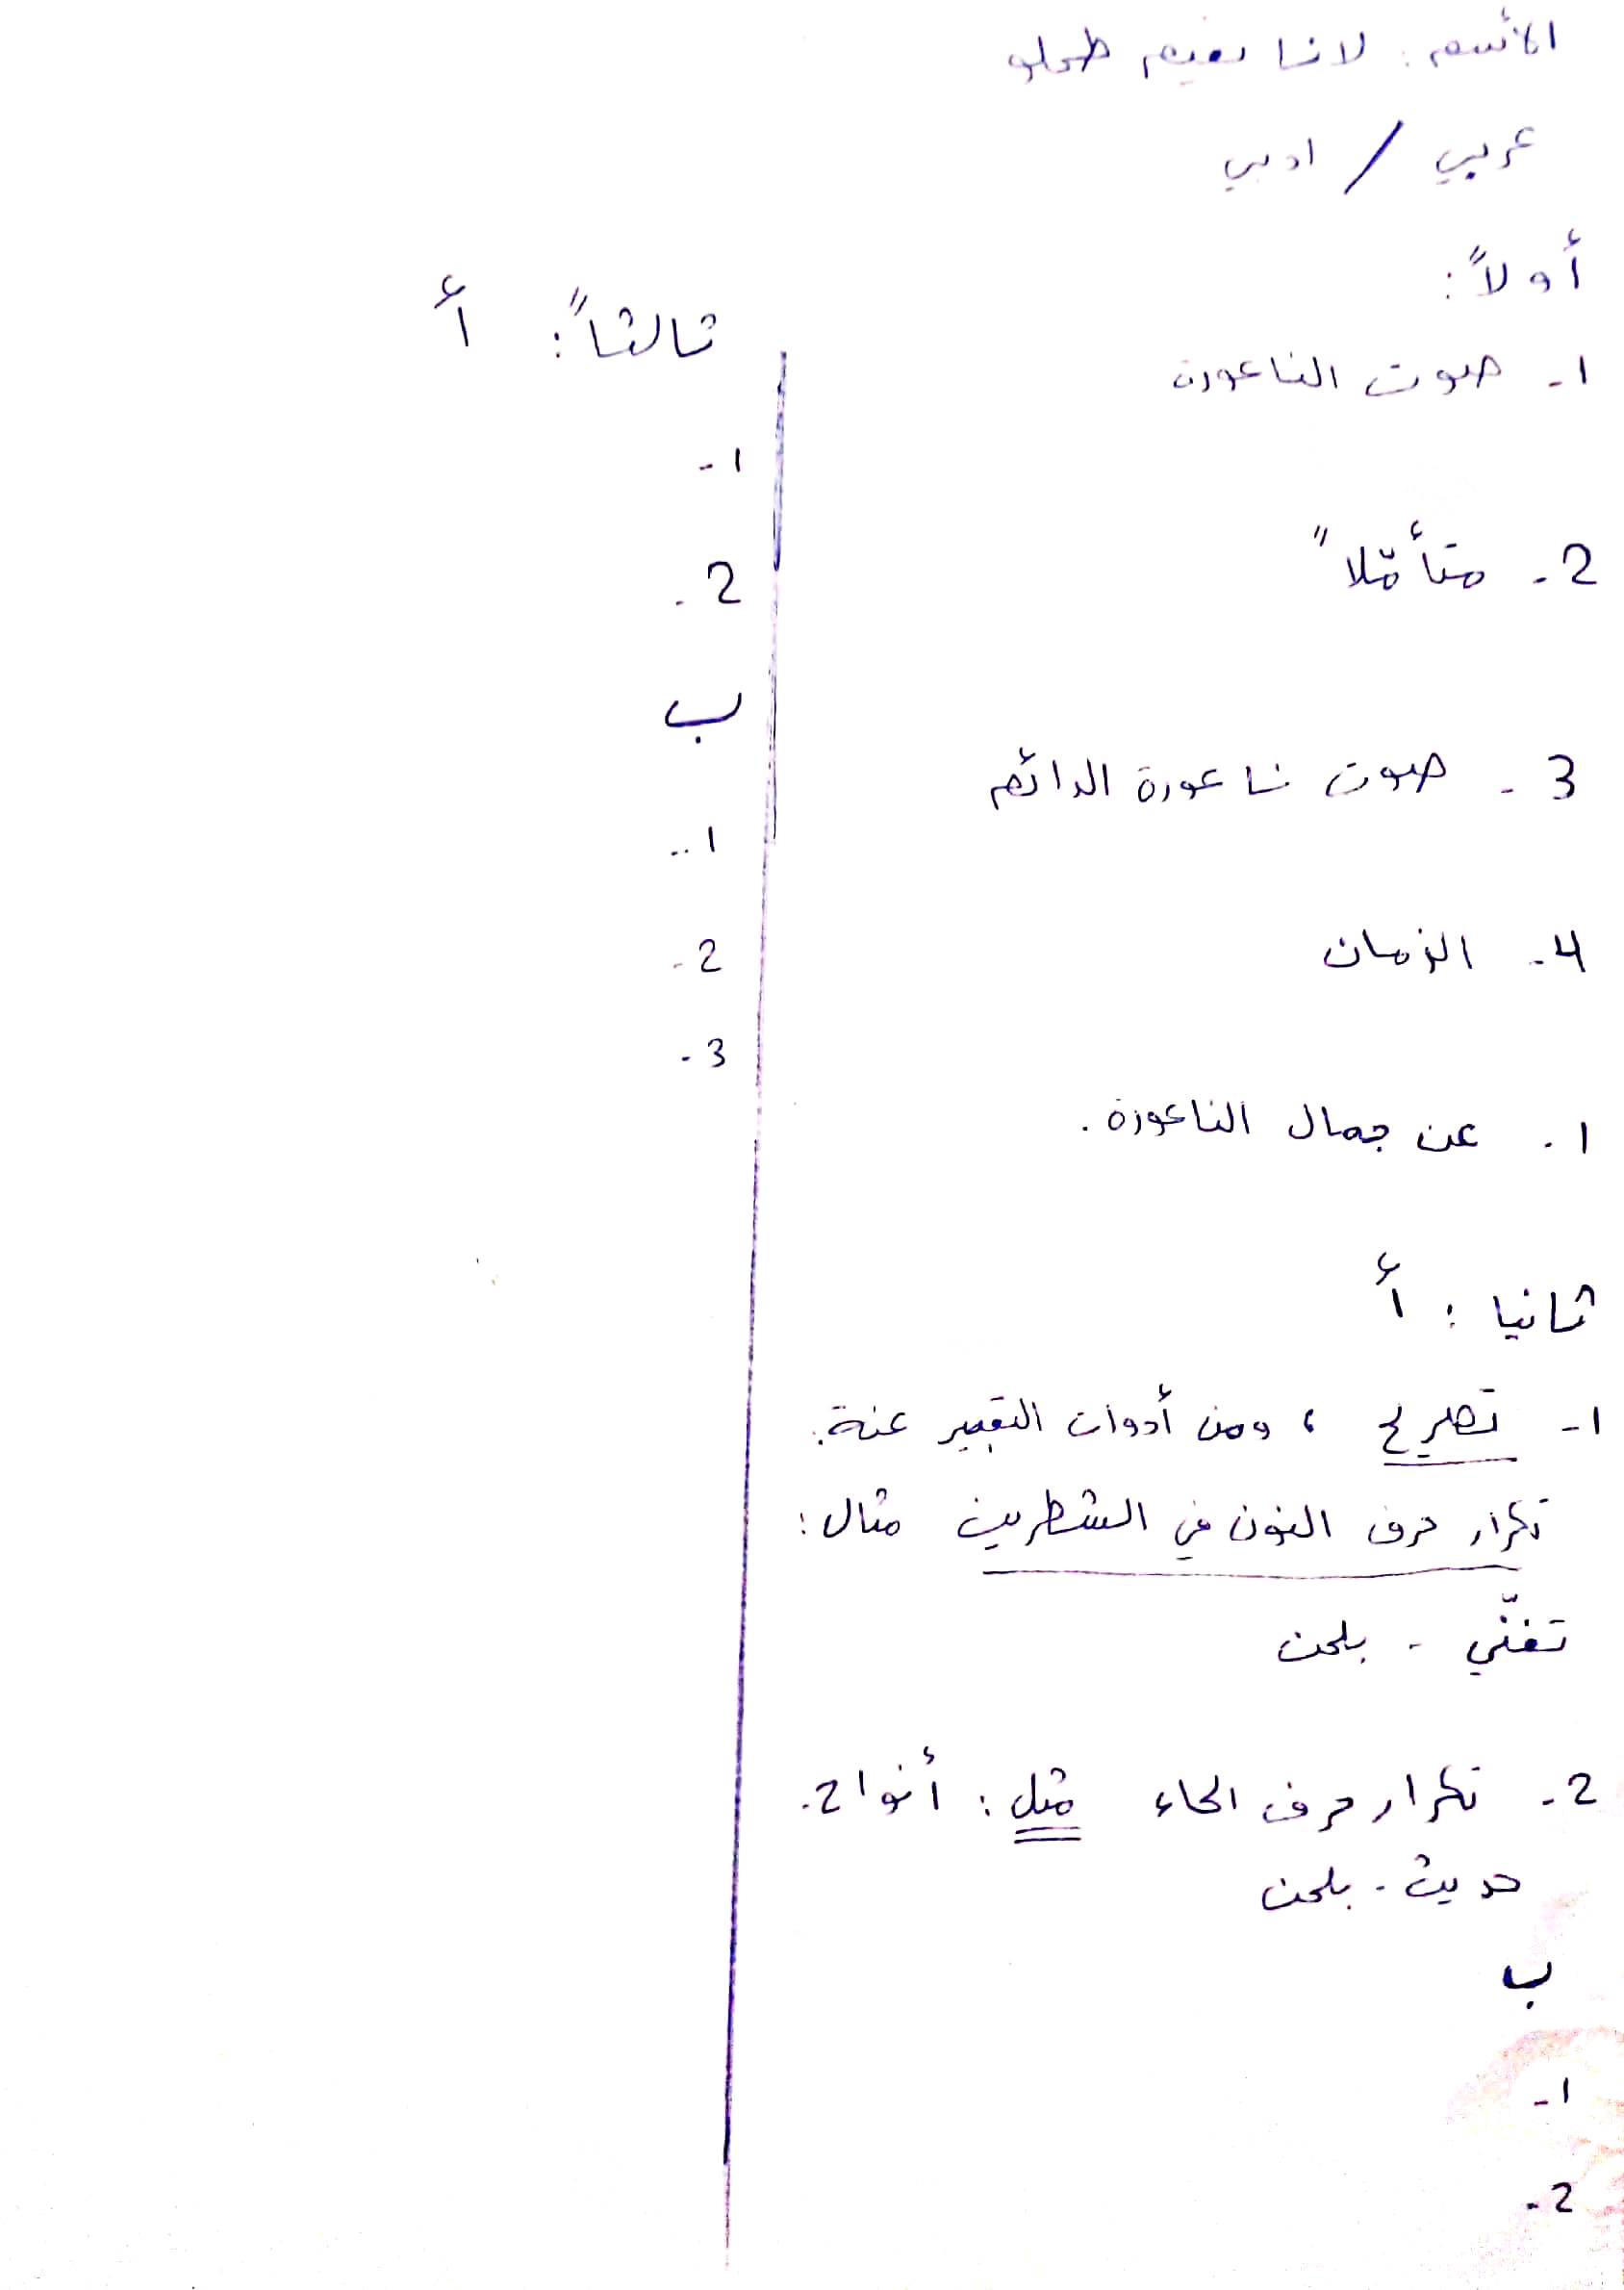 الأسم: لانا نعيم طحلو
عربي / ادبي
أولاً:
1- صوت الناعورة
2- متأمّلاً
3- صوت ناعورة الدائم
4- الزمان
1. عن جمال الناعورة.
ثانيا: أ
1- تصريح ، ومن أدوات التعبير عنة:
تكرار حرف النون في الشطرين مثال:
تغنّي - بلحن
2- تكرار حرف الحاء مثل: أنواح.
حديث - بلحن
ب
1-
2-
ثالثاً: أ
1-
2-
ب
1-
2-
3-